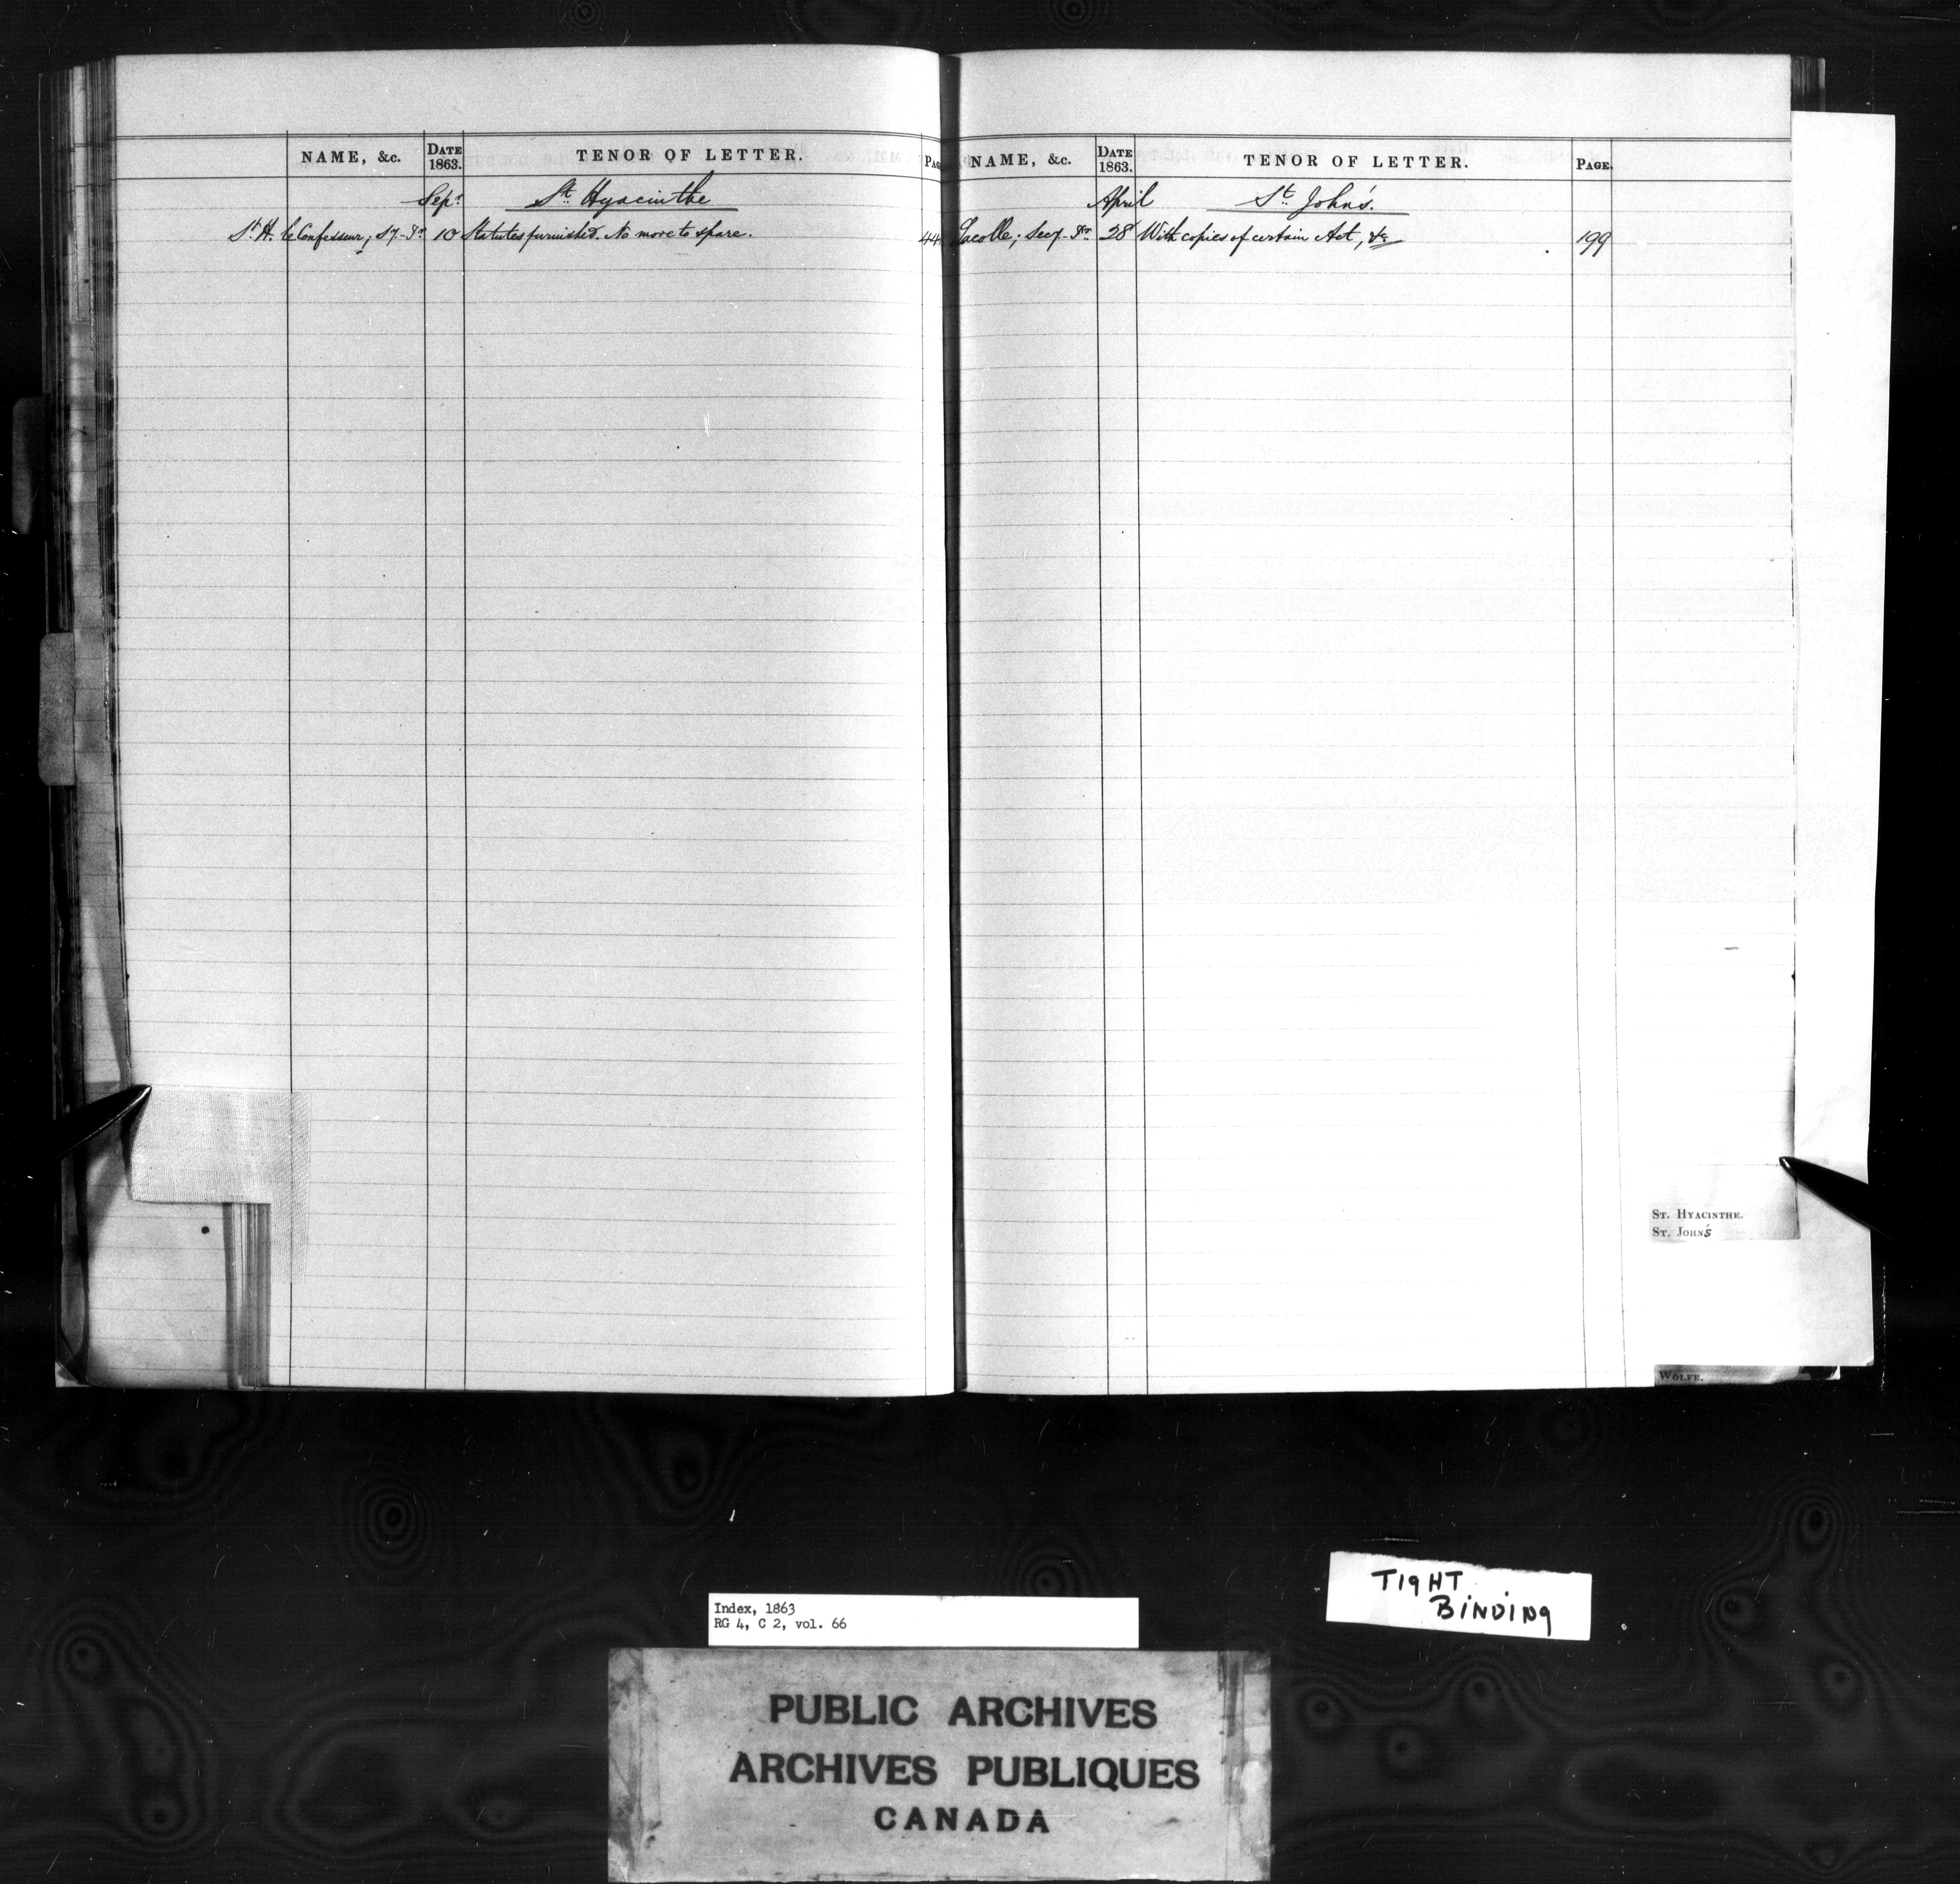 NAME, &c. DATE 1863. TENOR OF LETTER. PAG
Sepr St. Hyacinthe
St. H. le Confesseur; Sy-Tr 10 Statutes furnished. No more to spare. 44
NAME, &c. DATE 1863. TENOR OF LETTER. PAGE.
April St. John's.
Lacolle; Secy-Tr 28 With copies of certain Act, &c 199
ST. HYACINTHE.
ST. JOHN'S
WOLFE.
TIGHT
BINDING
Index, 1863
RG 4, C 2, vol. 66
PUBLIC ARCHIVES
ARCHIVES PUBLIQUES
CANADA